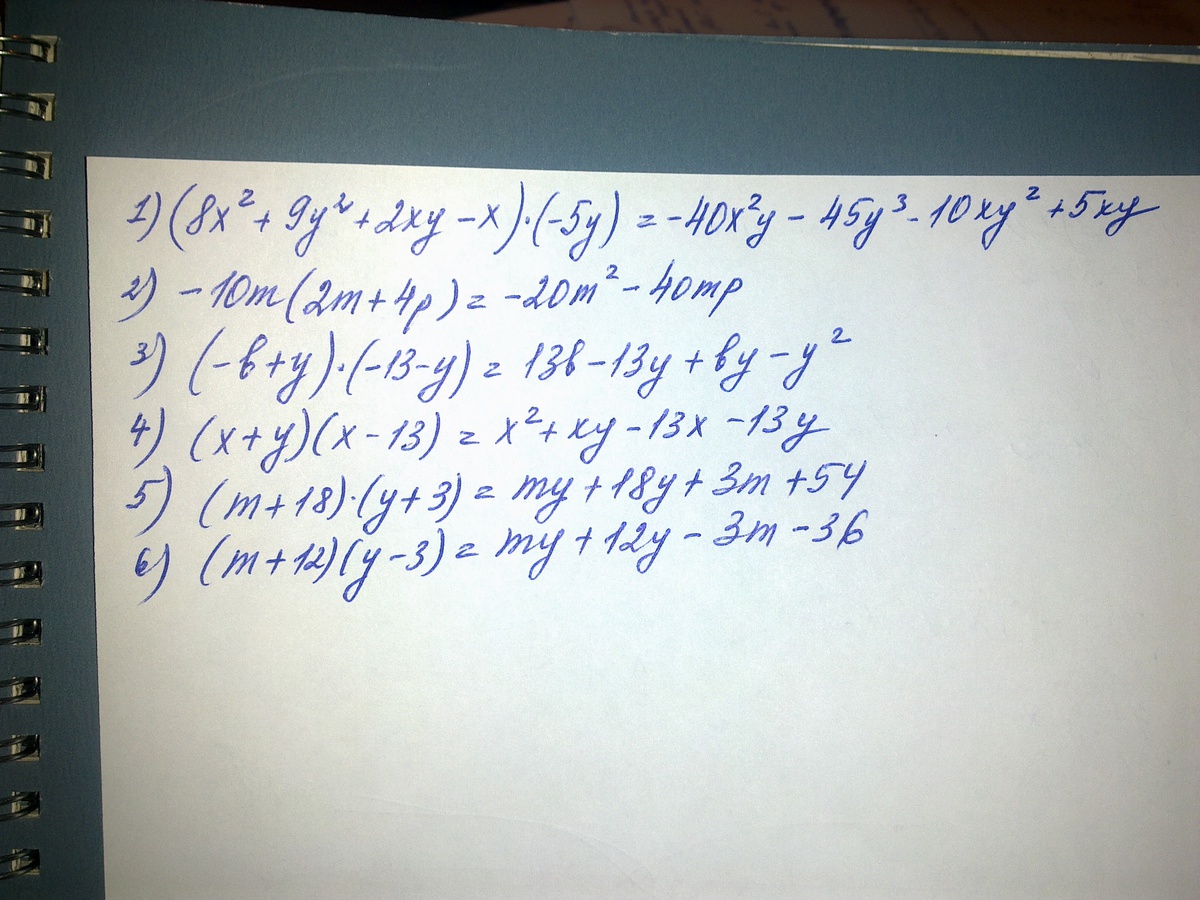 1) (8x² + 9y² + 2xy - x)·(-5y) = -40x²y - 45y³ - 10xy² + 5xy
2) -10m(2m + 4p) = -20m² - 40mp
3) (-b+y)·(-13-y) = 13b - 13y + by - y²
4) (x+y)(x-13) = x² + xy - 13x - 13y
5) (m+18)·(y+3) = my + 18y + 3m + 54
6) (m+12)(y-3) = my + 12y - 3m - 36